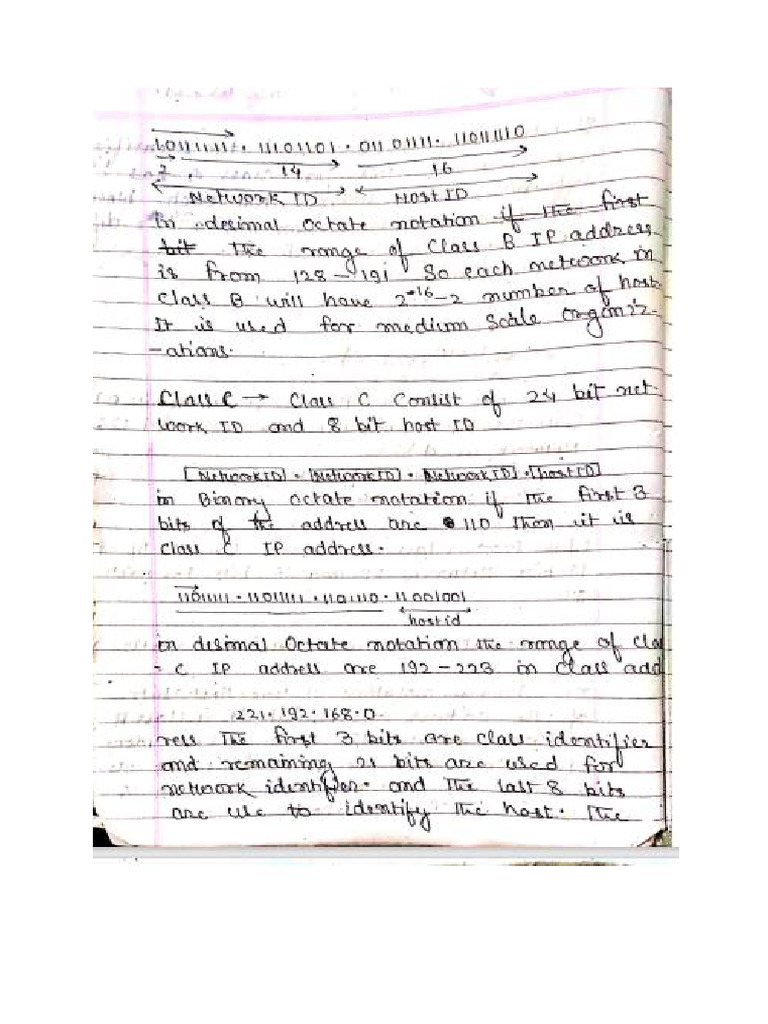 10111111. 11101101. 01101111. 11011110
2 14 16
Network ID Host ID
in desimal octate notation if the first
bit The range of Class B IP address
is from 128-191 So each network in
class B will have 2^16-2 number of host
It is used for medium scale organiz-
-ations.
Class C → Class C Consist of 24 bit net-
work ID and 8 bit host ID
[Network ID]. [Network ID]. [Network ID]. [host ID]
in Binary octate notation if the first 3
bits of the address are 110 Then it is
class C IP address.
.11001001
host id
in desimal Octate notation the range of Clas
- C IP address are 192-223 in class add
221.192.168.0
ress The first 3 bits are class identifier
and remaining 21 bits are used for
network identifier. and The last 8 bits
are use to identify the host. The